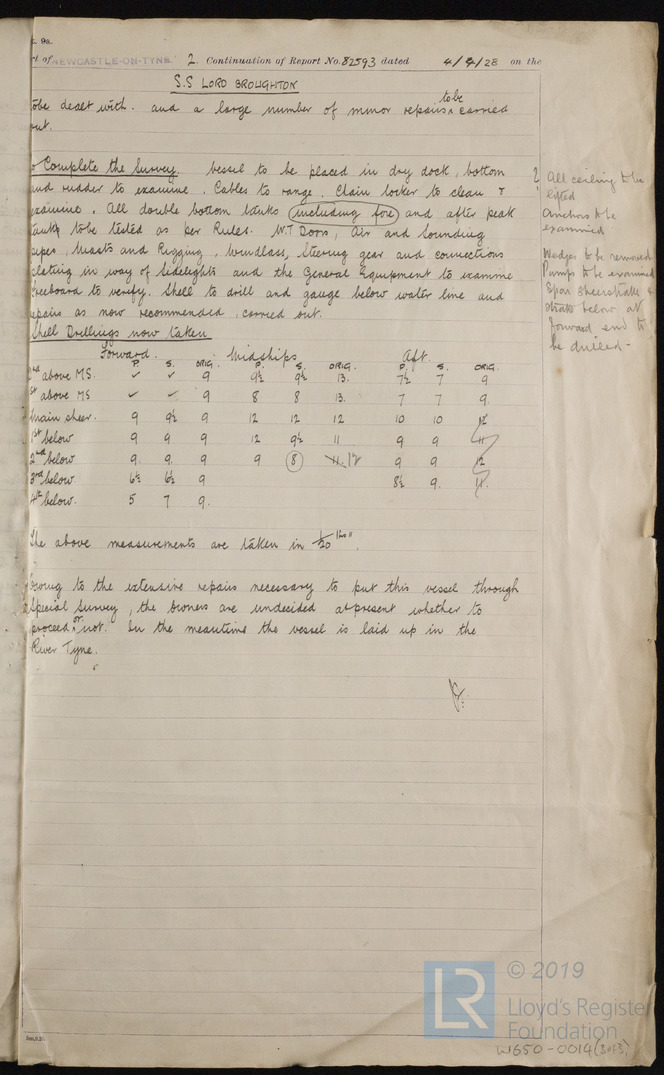 t. 9a.
rt of NEWCASTLE-ON-TYNE. 2. Continuation of Report No. 82593 dated 4/4/28 on the
S.S LORD BROUGHTON
to be dealt with. and a large number of minor repairs to be carried
out.
To Complete the Survey. Vessel to be placed in dry dock, bottom
and rudder to examine. Cables to range. Chain locker to clean &
examine. All double bottom tanks including fore and after peak
tanks to be tested as per Rules. W.T Doors, Air and Sounding
pipes, Masts and Rigging, Windlass, Steering gear and connections
plating in way of Sidelights and the General Equipment to examine
Freeboard to verify. Shell to drill and gauge below water line and
repairs as now recommended, carried out.
Shell Drillings now taken
Forward. Midships Aft.
P. S. ORIG. P. S. ORIG. P. S. ORIG.
2nd above MS. ✓ ✓ 9 9½ 9½ 13. 7½ 7 9
1st above MS ✓ ✓ 9 8 8 13. 7 7 9.
Main sheer. 9 9½ 9 12 12 12 10 10 12
1st below 9 9 9 12 9½ 11 9 9 11
2nd below 9. 9. 9 9 8 11. 12 9 9 12
3rd below 6½ 6½ 9 8½ 9. 11.
4th below. 5 7 9.
The above measurements are taken in 1/20 ths".
Owing to the extensive repairs necessary to put this vessel through
Special Survey, the Owners are undecided at present whether to
proceed or not. In the meantime the vessel is laid up in the
River Tyne.
All ceiling to be
lifted
Anchors to be
examined
Wedges to be removed
Pumps to be examined
Spar sheerstrake &
strake below at
forward end to
be drilled -
© 2019
LR
Lloyd's Register
Foundation
W650-0014 (3 of 3)